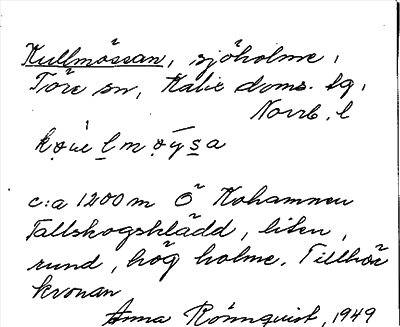 Kullmössan, sjöholme,
Töre sn, Kalix doms. lg,
Norrb. l
c:a 1200 m Ö Kohamnen
Tallskogsklädd, liten,
rund, hög holme. Tillhör
kronan
Anna Rönnquist, 1949